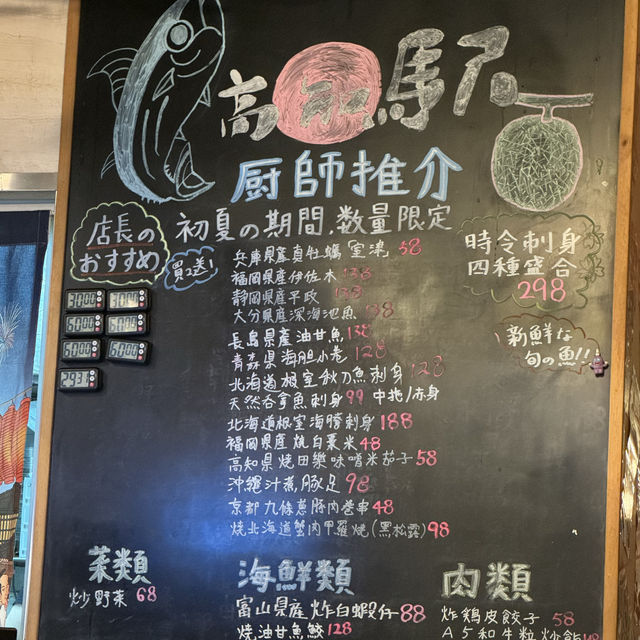 高知馬尺
厨師推介
店長の
おすすめ
初夏の期間.数量限定
買2送1
時令刺身
四種盛合
298
新鮮な
旬の魚!!
兵庫県産真牡蠣 室津 58
福岡県産伊佐木 138
静岡県産平政 138
大分県産深海池魚 138
長島県産油甘魚 138
青森県海胆小卷 128
北海道根室秋刀魚刺身 128
天然吞拿魚刺身 99 中拖/赤身
北海道根室海勝刺身 188
福岡県産燒白粟米 48
高知県燒田樂味噌米茄子 58
沖繩汁煮豚足 98
京都九條蔥豚肉卷串 48
燒北海道蟹肉甲羅燒(黑松露) 98
3000
3000
5000
5000
5000
5000
菜類
炒野菜 68
海鮮類
富山県産炸白蝦仔 88
燒油甘魚鮫 128
肉類
炸鶏皮餃子 58
A5和牛粒炒飯